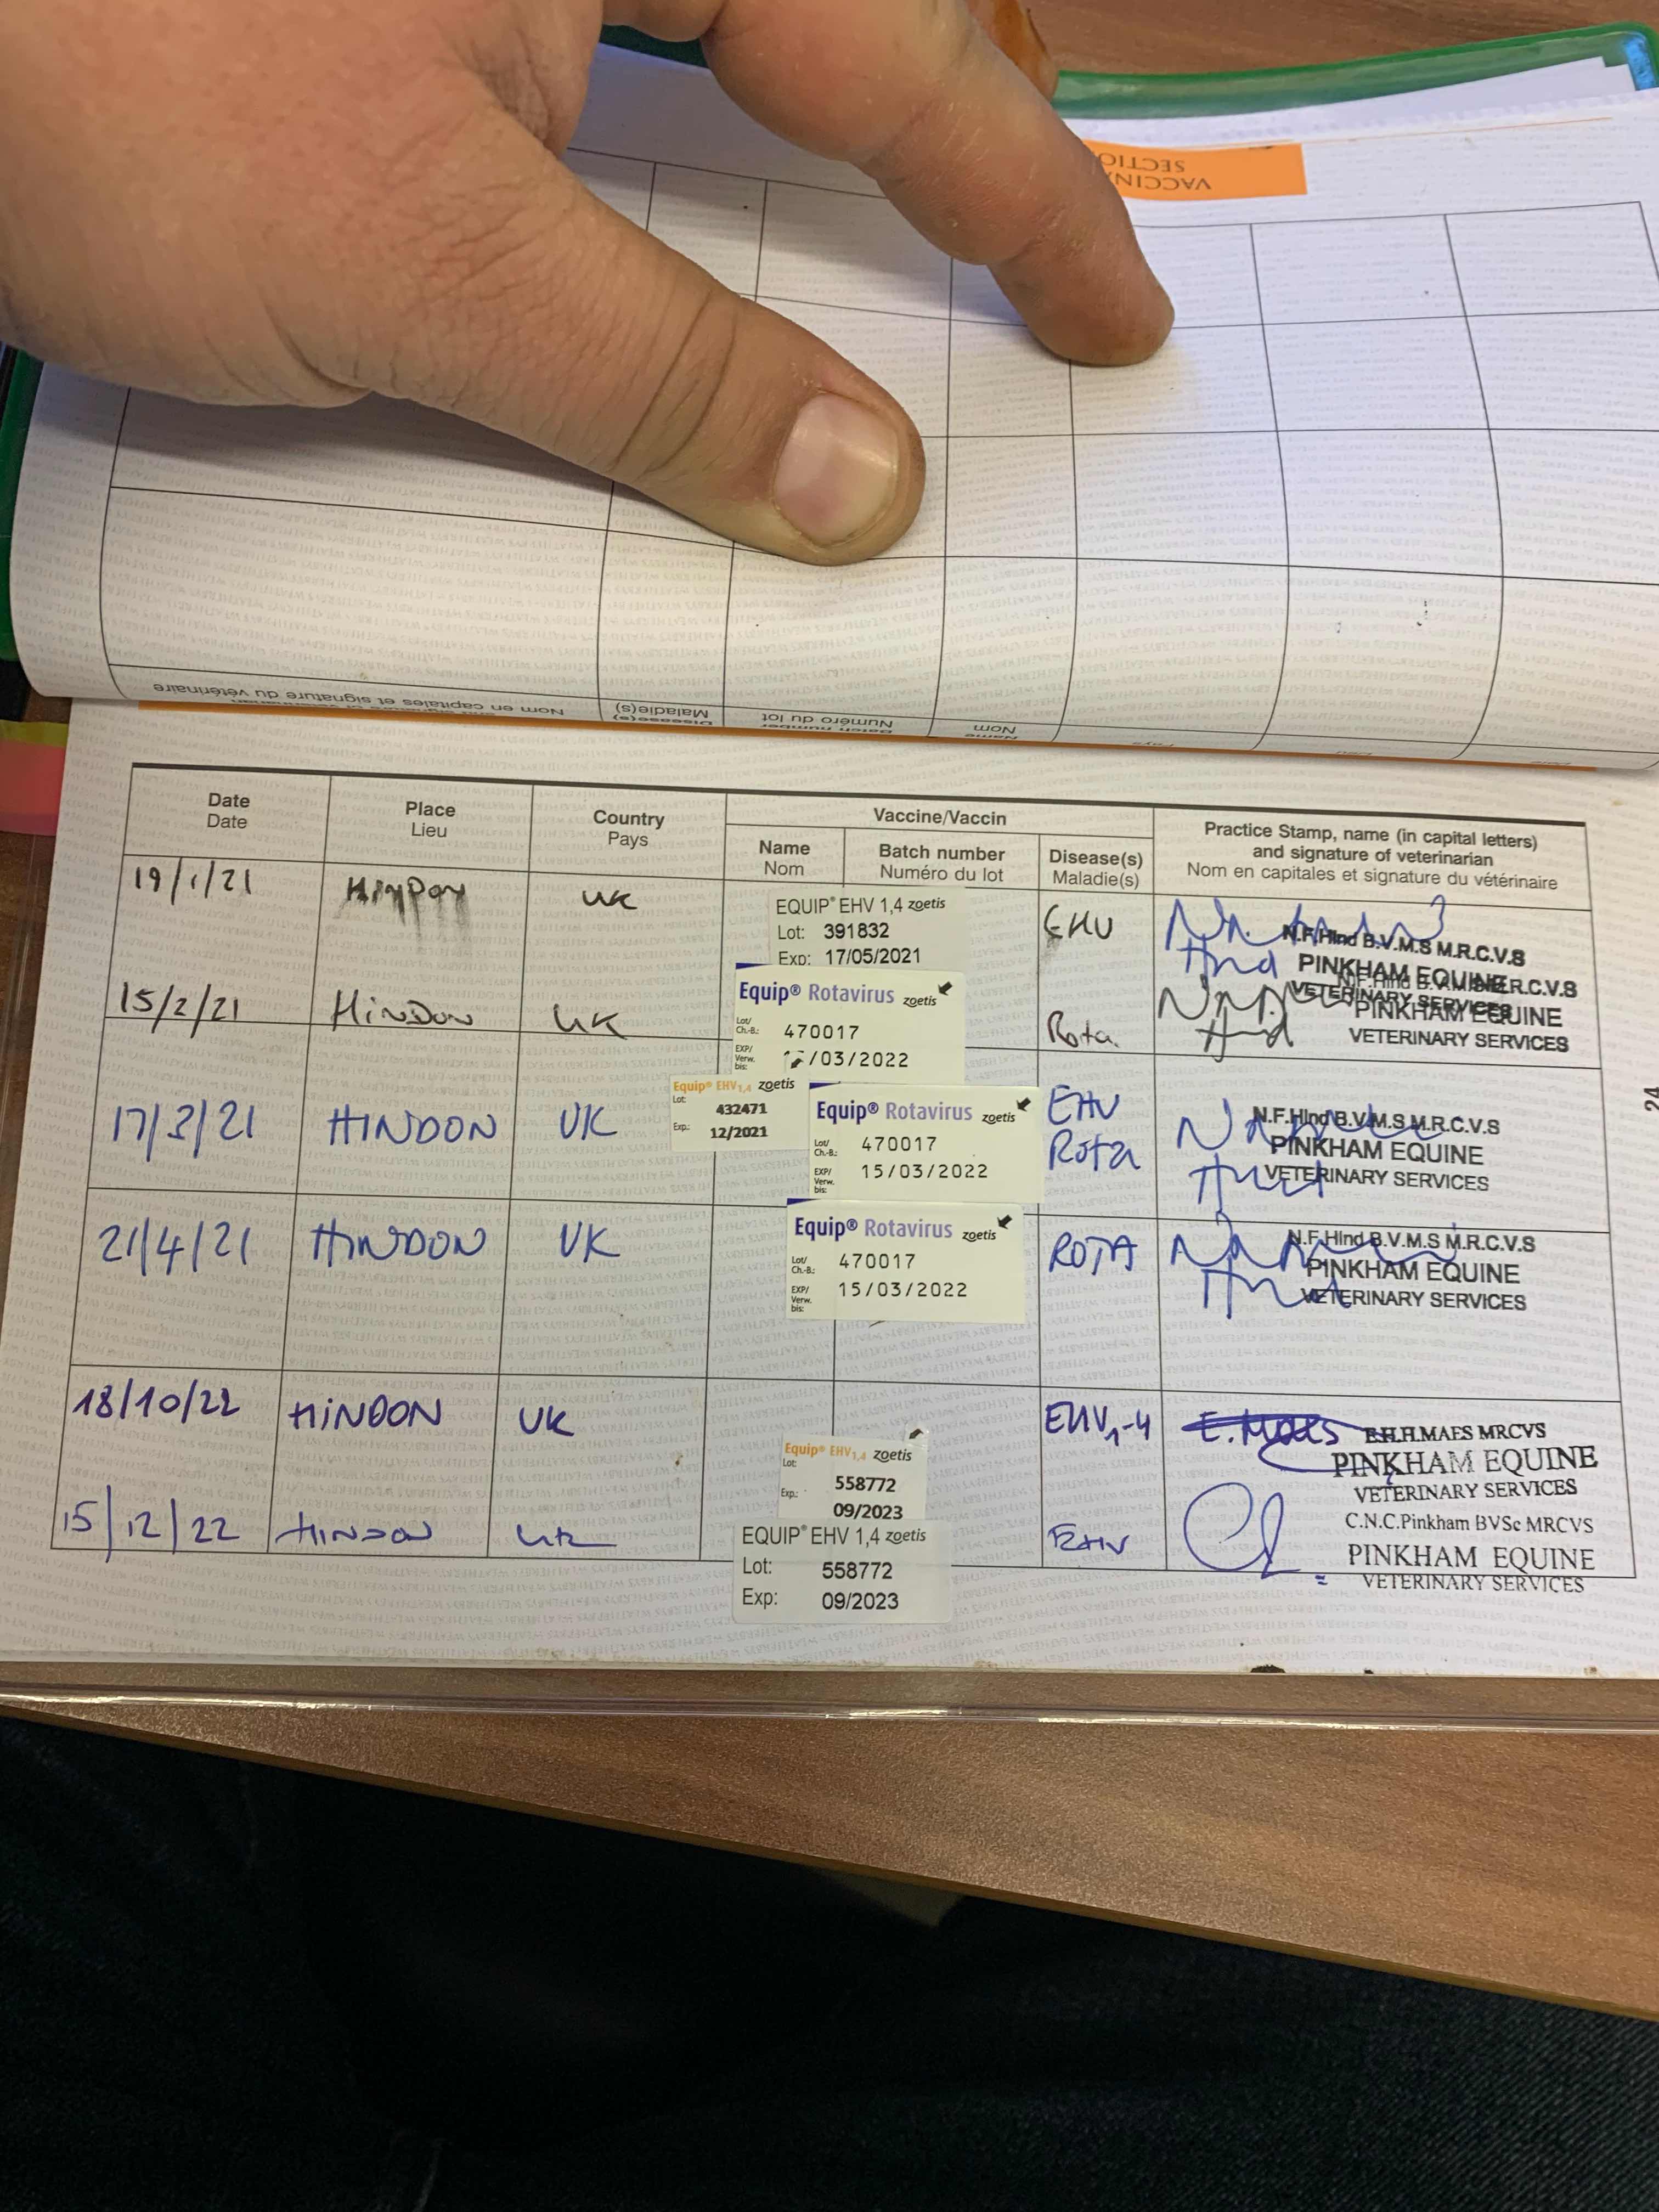 VACCINA
SECTIO
Nom en capitales et signature du vétérinaire
Disease(s)
Maladie(s)
Batch number
Numéro du lot
Name
Nom
Date
Date
Place
Lieu
Country
Pays
Vaccine/Vaccin
Name
Nom
Batch number
Numéro du lot
Disease(s)
Maladie(s)
Practice Stamp, name (in capital letters)
and signature of veterinarian
Nom en capitales et signature du vétérinaire
19/1/21
UK
EQUIP® EHV 1,4 zoetis
Lot: 391832
Exp: 17/05/2021
EHV
N.F.Hind B.V.M.S M.R.C.V.S
PINKHAM EQUINE
VETERINARY SERVICES
15/2/21
HINDON
UK
Equip® Rotavirus zoetis
Lot/
Ch.-B.: 470017
EXP/
Verw.
bis: /03/2022
Rota.
PINKHAM EQUINE
VETERINARY SERVICES
17/3/21
HINDON
UK
Equip® EHV1,4 zoetis
Lot: 432471
Exp.: 12/2021
Equip® Rotavirus zoetis
Lot/
Ch.-B.: 470017
EXP/
Verw.
bis: 15/03/2022
EHV
Rota
N.F.Hind B.V.M.S M.R.C.V.S
PINKHAM EQUINE
VETERINARY SERVICES
24
21/4/21
HINDON
UK
Equip® Rotavirus zoetis
Lot/
Ch.-B.: 470017
EXP/
Verw.
bis: 15/03/2022
ROTA
N.F.Hind B.V.M.S M.R.C.V.S
PINKHAM EQUINE
VETERINARY SERVICES
18/10/22
HINDON
UK
Equip® EHV1,4 zoetis
Lot: 558772
Exp.: 09/2023
EHV1-4
E.Maes
E.H.H.MAES MRCVS
PINKHAM EQUINE
VETERINARY SERVICES
15/12/22
HINDON
UK
EQUIP® EHV 1,4 zoetis
Lot: 558772
Exp: 09/2023
EHV
C.N.C.Pinkham BVSc MRCVS
PINKHAM EQUINE
VETERINARY SERVICES